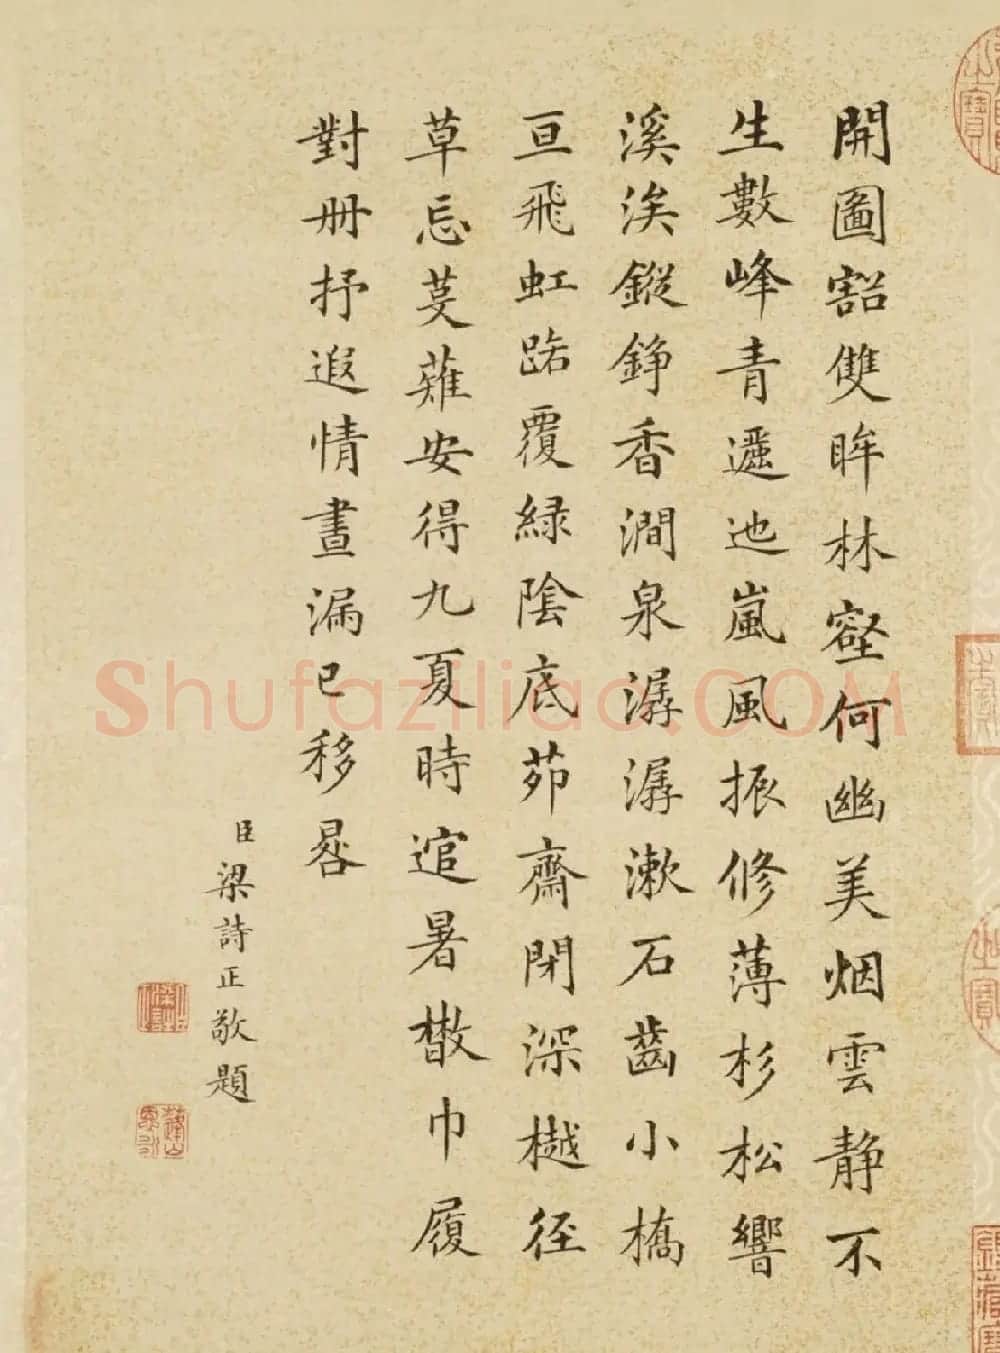 開圖豁雙眸林壑何幽美烟雲静不
生數峰青邐迆嵐風振修薄杉松響
溪涘鏦錚香澗泉潺潺漱石齒小橋
亘飛虹踣覆緑陰底茆齋閉深樾徑
草忘芟薙安得九夏時逭暑散巾履
對册抒遐情晝漏已移晷
臣梁詩正敬題
Shufaziliao.COM